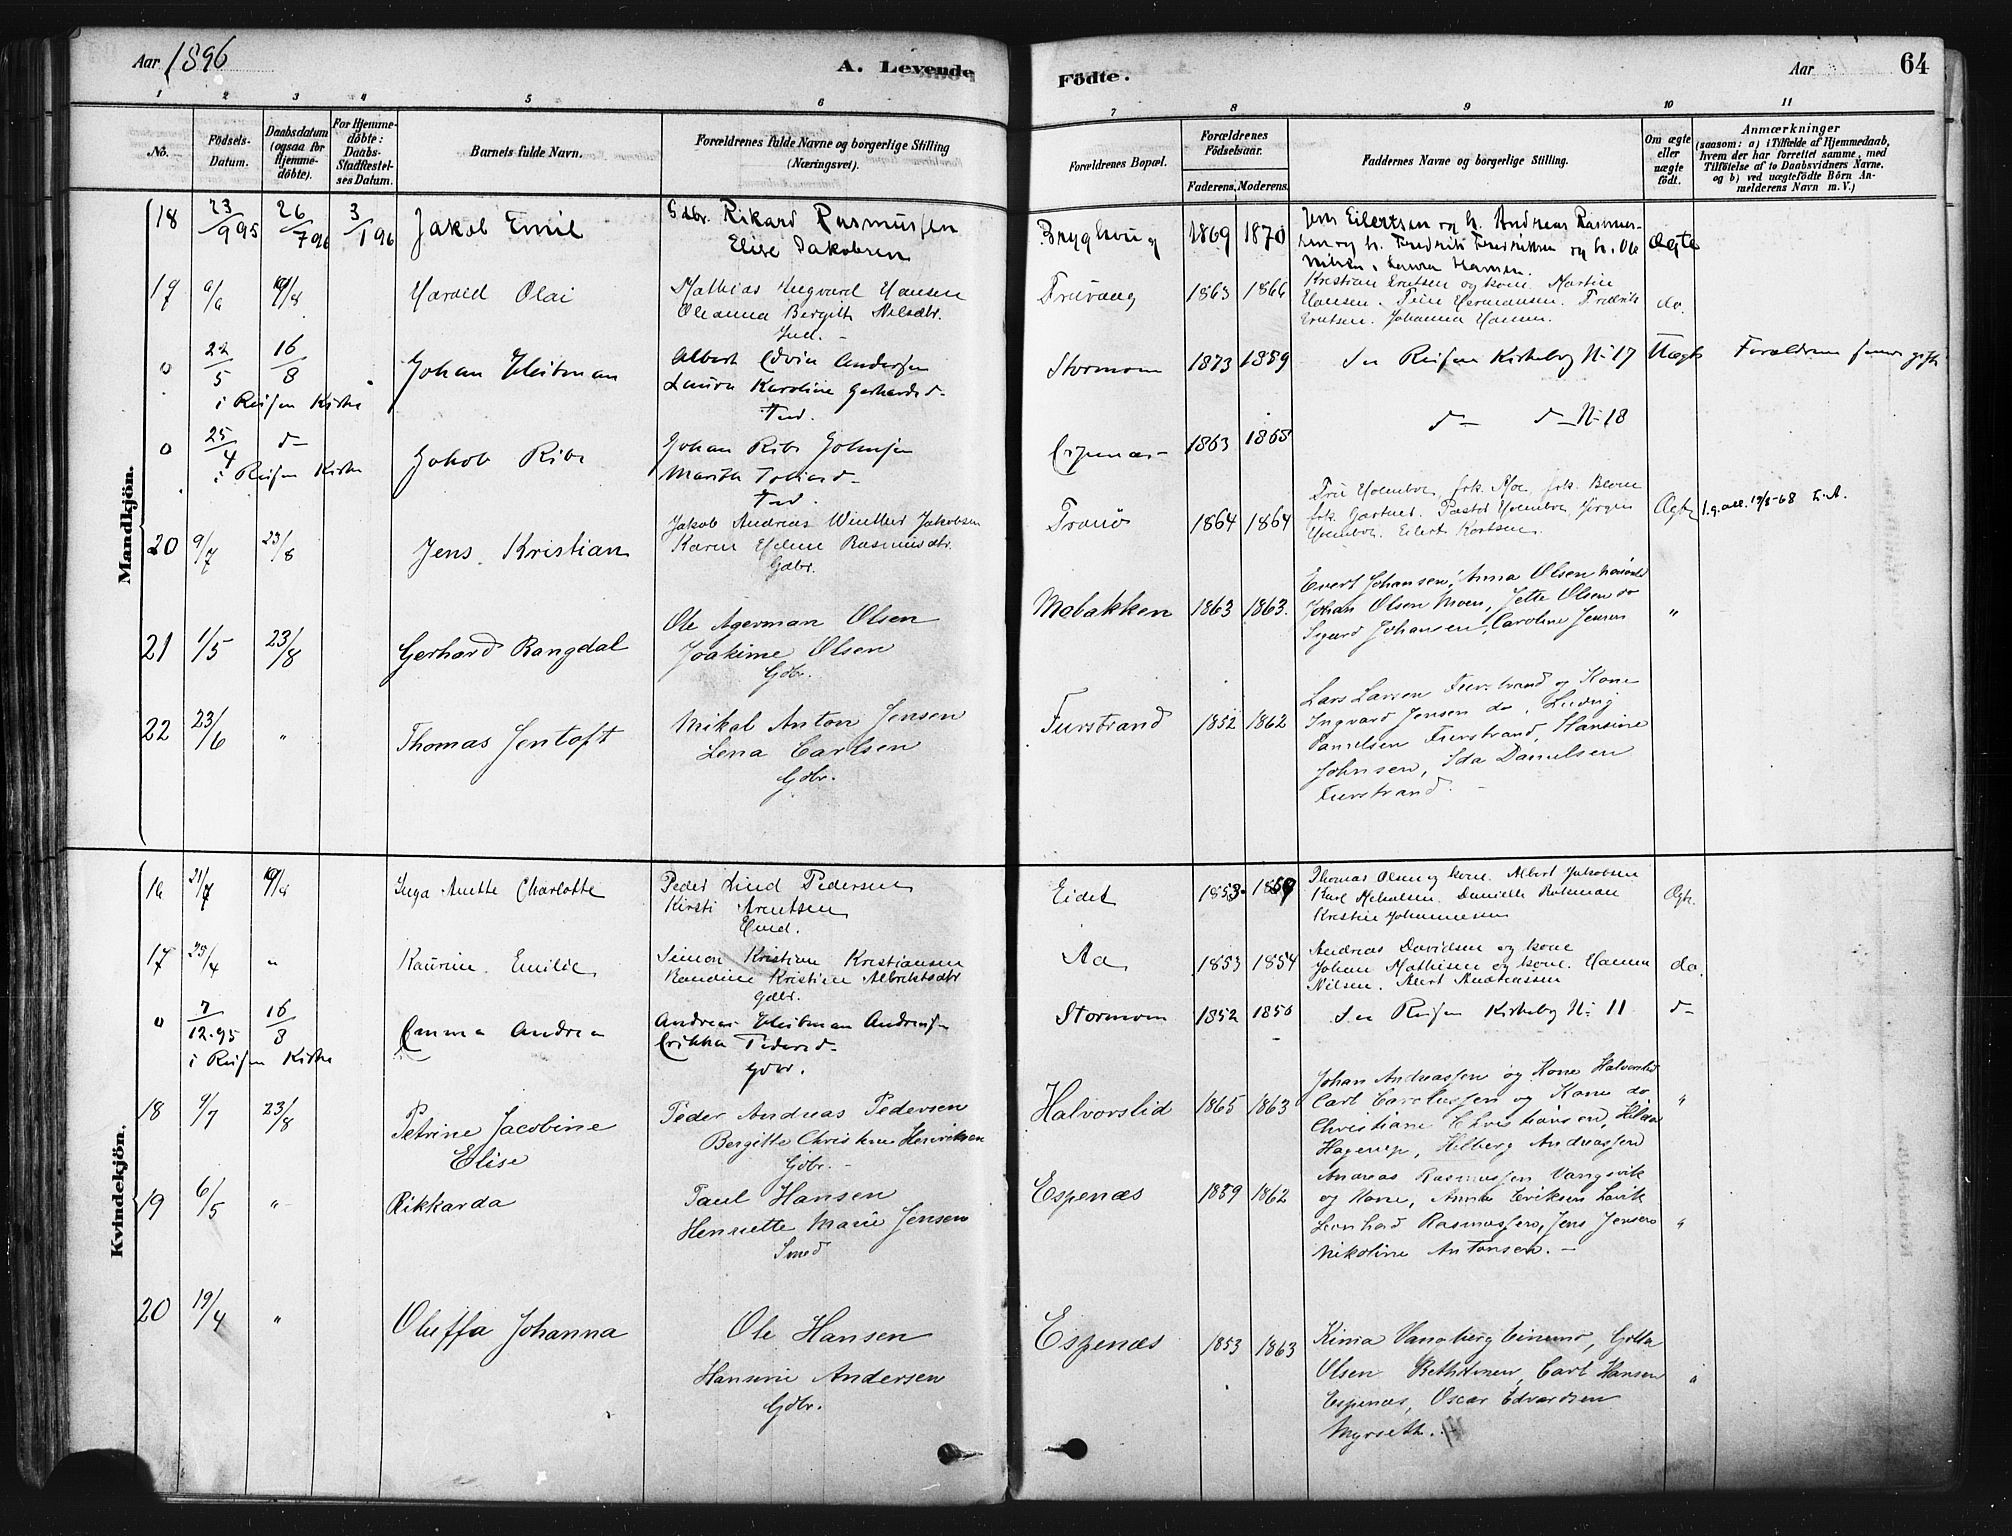 Aar 1896
A. Levende
Födte.
Aar
64
1 2 3 4 5 6 7 8 9 10 11
No.
Födsels-Datum.
Daabsdatum (ogsaa for Hjemme-döbte).
For Hjemme-döbte: Daabs-Stadfæstel-ses Datum.
Barnets fulde Navn.
Forældrenes fulde Navne og borgerlige Stilling (Næringsvei).
Forældrenes Bopæl.
Forældrenes Födselsaar.
Faderens. Moderens.
Faddernes Navne og borgerlige Stilling.
Om ægte eller uægte födt.
Anmærkninger
(saasom: a) i Tilfælde af Hjemmedaab, hvem der har forrettet samme, med Tilföielse af to Daabsvidners Navne. og b) ved uægtefödte Börn An-melderens Navn m. V.)
Mandkjön.
18 23/9 95 26/7 96 3/1 96 Jakob Emil Gdbr. Rikard Rasmussen
Elise Jakobsen
1869 1870 Jens Eilertsen og h. Andreas Rasmus-
sen og h. Fredrik Fredriksen og h. Ole
Nilsen. Laura Hansen.
Ægte
19 6/6 Harald Olai Mathias Ingvard Hansen
Oleanna Bergitte Nilsdtr.
Ind.
1863 1866 Kristian og kone Martin
Hansen. Hermansen. Fredrik
Johanna Hansen.
do.
" 22/5 16/8 Johan Albert Edvin Andersen
i Reisen Kirke Laura Karoline Gerhardsd.
Ind.
Stormoen 1873 1859 Se Reisen Kirkebog N: 17 Uægte Forældrene
" 25/4 d- Jakob Johan Johnsen
i Reisen Kirke Marith
Ind.
1863 1868 d- d- N: 18
20 9/7 23/8 Jens Kristian Jakob Andreas Winther Jakobsen
Karen Rasmusdtr.
Gdbr.
Tranö 1864 1864 Fru Holmboe, frk. Moe, frk.
frk. Gærtner. Pastor Holmboe, Jörgen
Holmboe. Eilert Kortsen
Ægte 1.g. att. 19/8-68
21 1/5 23/8 Gerhard Rangdal Ole Agerman Olsen
Joakime Olsen
Gdbr.
Mobakken 1863 1863. Evert Johansen, Anna Olsen
Johan Olsen Moen, Jette Olsen do
Sigurd Johansen, Caroline Jensen
"
22 23/6 " Thomas Jentoft Mikal Anton Jensen
Lena Carlsen
Gdbr.
Furstrand 1852 1862 Lars Larsen Furstrand og Kone
Ingvard Jensen do, Ludvig
Danielsen Furstrand, Hansine
Johnsen, Ida Danielsen
Furstrand.
Kvindekjön.
16 21/7 Inga Anette Charlotte Peder Lind Pedersen
Kirsti Arntsen
Eidet 1853 Thomas Olsen og kone. Albert Jakobsen
Karl Danielle
Kristine Johannesen
Ægte.
17 25/4 " Kaurine Emilie Simon Kristian Kristiansen
Kristine Albrektsdtr
Gdbr.
Aa 1853 1854 Andreas Davidsen og kone
Johan Mathisen og kone. Hanna
Nilsen. Andreassen
do.
" 7/12.95 16/8 Emma Andrea Andreas Andreas.
i Reisen Kirke Erikka Pedersd.
Gdbr.
Stormoen 1852 1850 Se Reisen Kirkebog N: 11 d-
18 9/7 23/8 Petrine Jacobine
Elise
Peder Andreas Pedersen
Bergitte Christine Henriksen
Gdbr.
Halvorslid 1865 1863 Johan Andreassen og Kone Halvorslid
Carl og Kone do
Christiane Christiansen,
Hagerup, Hilberg Andreassen
"
19 6/5 " Rikkarda Paul Hansen
Henriette Marie Jensen
Smed
Espenæs 1859 1862 Andreas Rasmussen Vangsvik
og Kone, Anna Eriksen Lavik
Leonhard Rasmussen, Jens Jensen
Nikoline Antonsen.
"
20 19/4 " Oluffa Johanna Ole Hansen
Hansine Andersen
Gdbr.
Espenæs 1853 1863 Vangberg Gitta
Olsen Carl Hansen
Espenæs, Oscar Edvardsen
Myrseth.
"